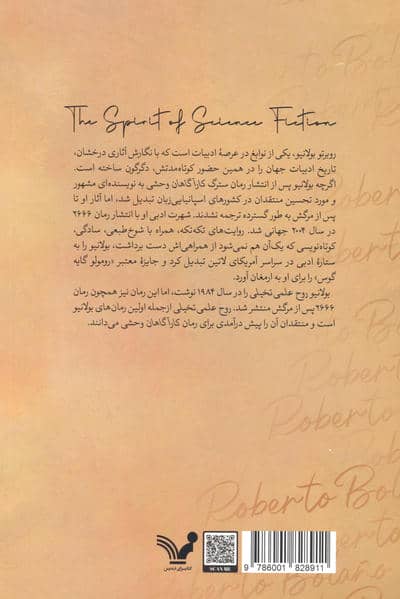 The Spirit of Science Fiction
روبرتو بولانیو، یکی از نوابغ در عرصهٔ ادبیات است که با نگارش آثاری درخشان،
تاریخ ادبیات جهان را در همین حضور کوتاه‌مدتش، دگرگون ساخته است.
اگرچه بولانیو پس از انتشار رمان سترگ کارآگاهان وحشی به نویسنده‌ای مشهور
و مورد تحسین منتقدان در کشورهای اسپانیایی‌زبان تبدیل شد، اما آثار او تا
پس از مرگش به طور گسترده ترجمه نشدند. شهرت ادبی او با انتشار رمان ۲۶۶۶
در سال ۲۰۰۴ جهانی شد. روایت‌های تکه‌تکه، همراه با شوخ‌طبعی، سادگی،
کوتاه‌نویسی که یک‌آن هم نمی‌شود از همراهی‌اش دست برداشت، بولانیو را به
ستارهٔ ادبی در سراسر آمریکای لاتین تبدیل کرد و جایزهٔ معتبر «رومولو گایه
گوس» را برای او به ارمغان آورد.
بولانیو روح علمی تخیلی را در سال ۱۹۸۴ نوشت، اما این رمان نیز همچون رمان
۲۶۶۶ پس از مرگش منتشر شد. روح علمی تخیلی ازجمله اولین رمان‌های بولانیو
است و منتقدان آن را پیش درآمدی برای رمان کارآگاهان وحشی می‌دانند.
Roberto Bola
SCAN ME
9 786001 828911